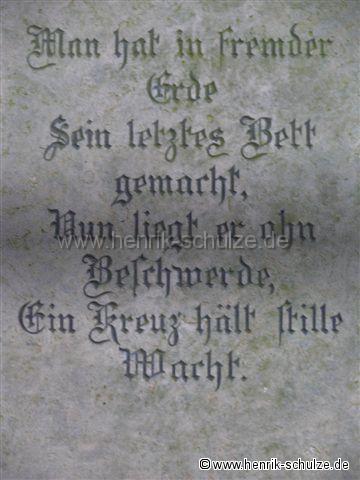 Man hat in fremder
Erde
Sein letztes Bett
gemacht,
Nun liegt er ohn
www.henrik-schulze.de
Beſchwerde,
Ein Kreuz hält ſtille
Wacht.
©www.henrik-schulze.de